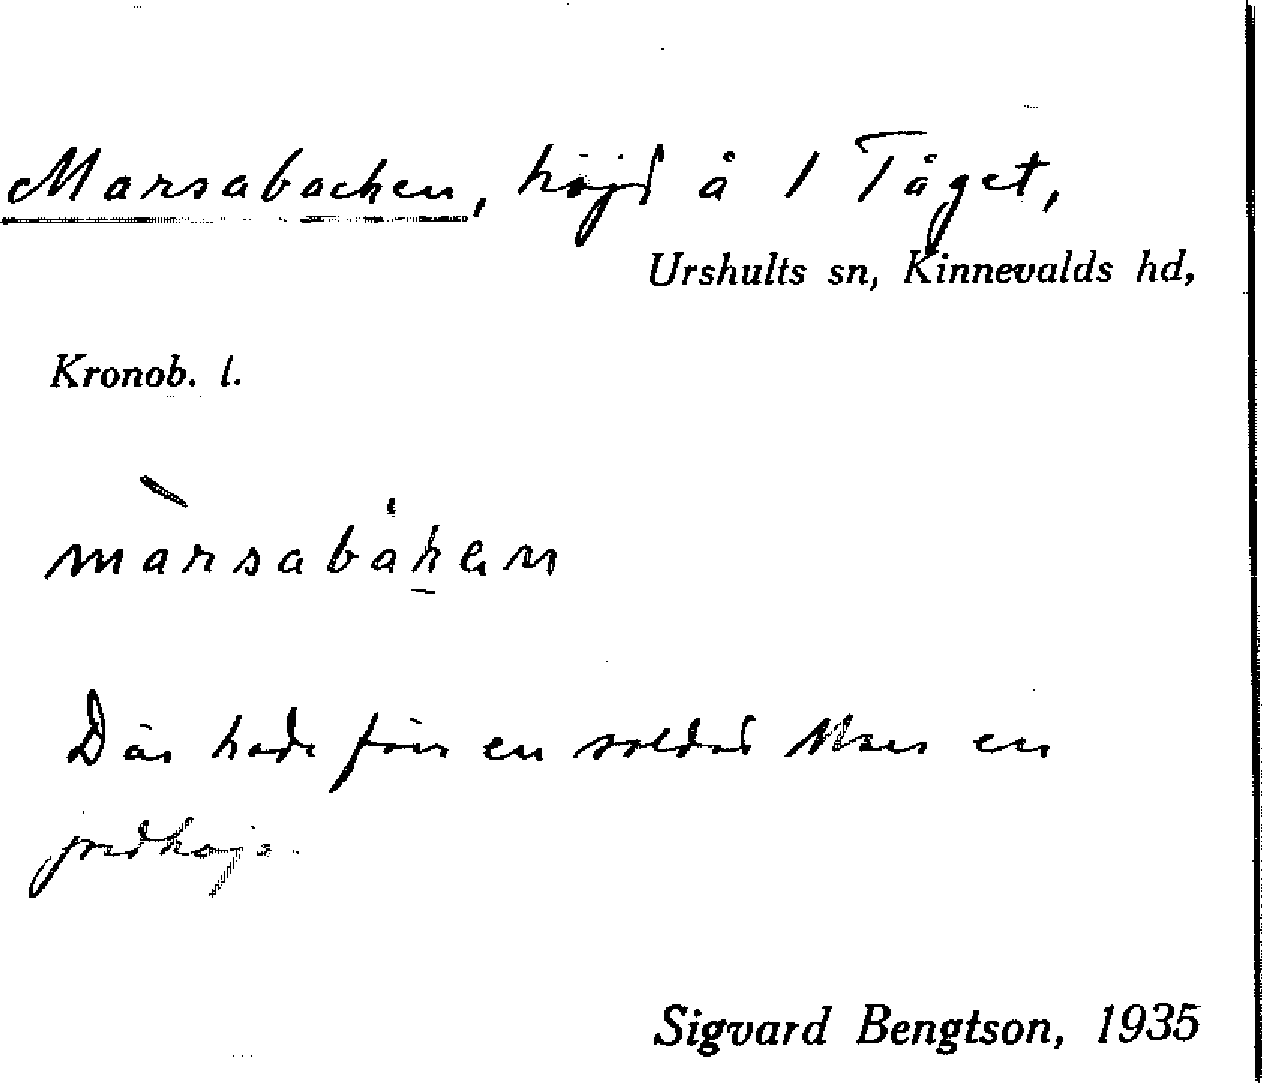 Marsabacken, höjd å 1 Tåget,
Urshults sn, Kinnevalds hd,
Kronob. l.
màrsabákan
Där hade förr en soldat Mars en
jordkoja.
Sigvard Bengtson, 1935